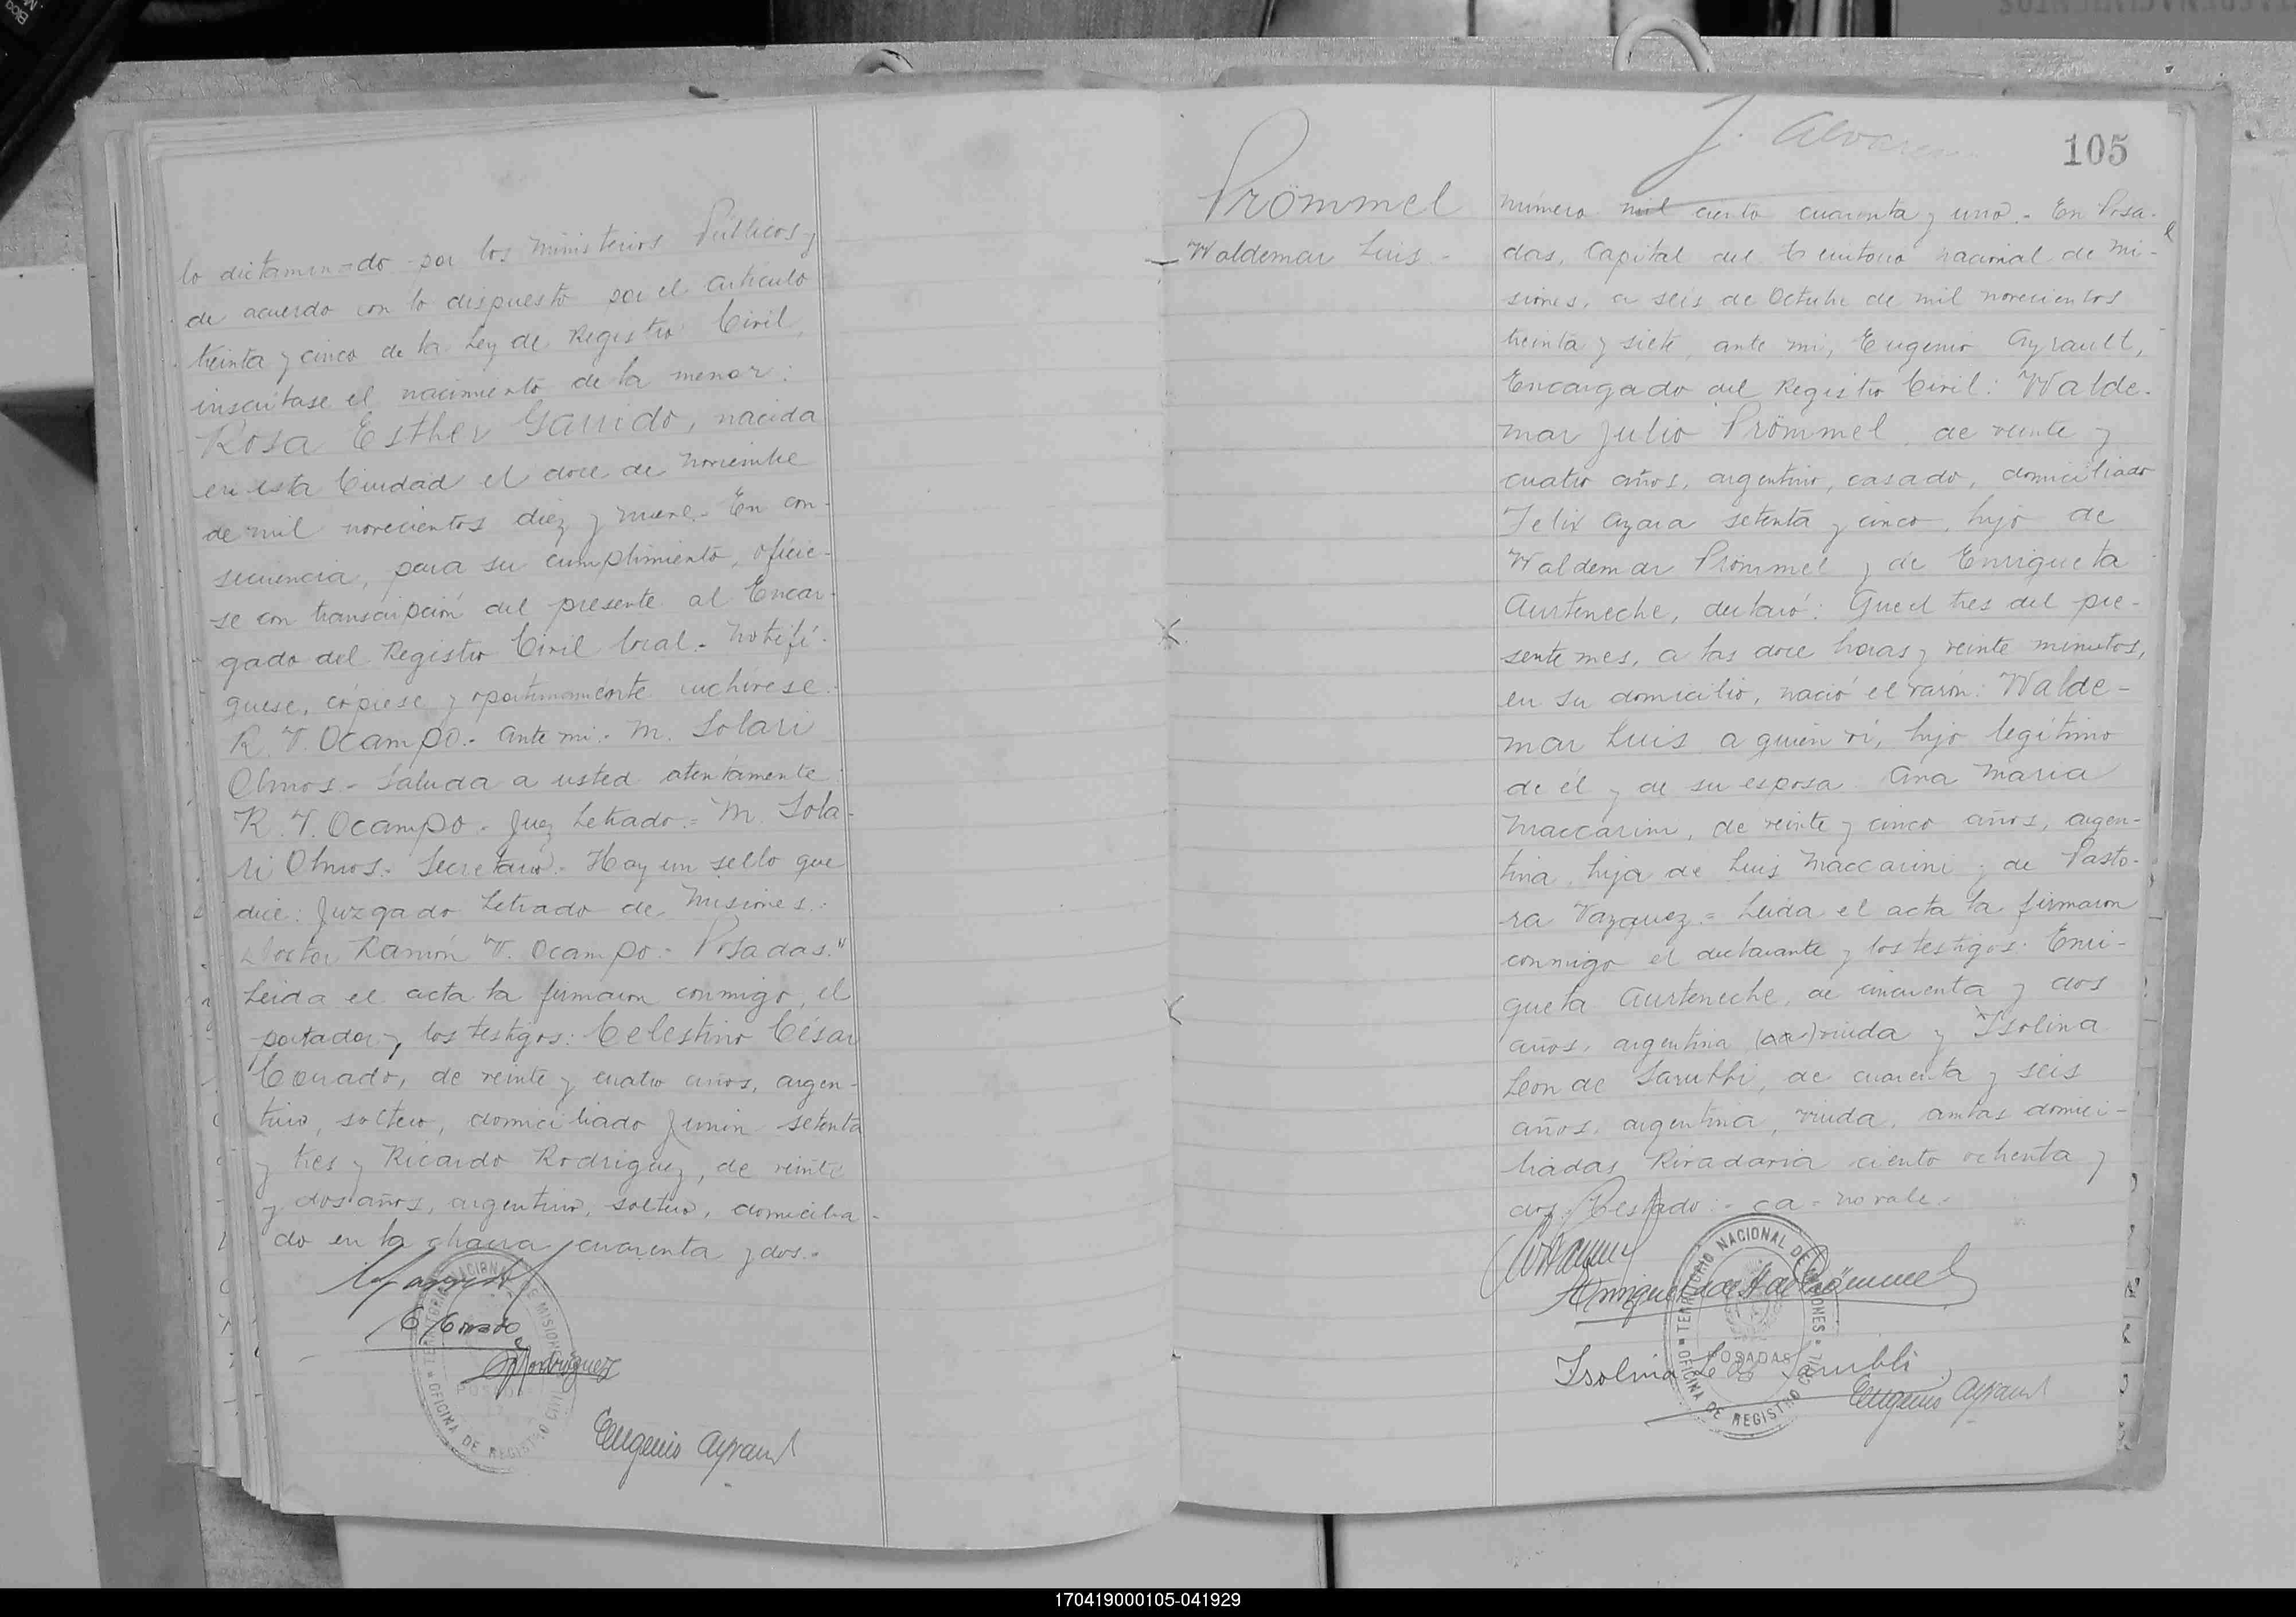 lo dictaminado por los Ministerios Públicos y
de acuerdo con lo dispuesto por el artículo
treinta y cinco de la Ley de Registro Civil,
inscríbase el nacimiento de la menor:
Rosa Esther Garrido, nacida
en esta Ciudad el doce de noviembre
de mil novecientos diez y nueve.- En con-
secuencia, para su cumplimiento, ofície-
se con transcripción del presente al Encar-
gado del Registro Civil local.- Notifí-
quese, cópiese y oportunamente archívese.
R. V. Ocampo.- Ante mi.- M. Solari
Olmos.- Saluda a usted atentamente
R. V. Ocampo.- Juez Letrado.= M. Sola-
ri Olmos.- Secretario.- Hay un sello que
dice: Juzgado Letrado de Misiones.:
Doctor Ramón V. Ocampo.- Posadas."
Leida el acta la firmaron conmigo, el
portador y los testigos: Celestino César
de veinte y cuatro años, argen-
tino, soltero, domiciliado Junin setenta
y tres y Ricardo Rodriguez, de veinte
y dos años, argentino, soltero, domicilia-
do en la chacra cuarenta y dos.-
Rodriguez
TERRITORIO NACIONAL DE MISIONES
OFICINA DE REGISTRO CIVIL
POSADAS
Eugenio Ayrault
J. Alvarenga
105
Prömmel
Waldemar Luis.-
Número mil ciento cuarenta y uno.- En Posa-
das, Capital del Territorio nacional de Mi-
siones, a seis de Octubre de mil novecientos
treinta y siete, ante mi, Eugenio Ayrault,
Encargado del Registro Civil: Walde-
mar Julio Prömmel, de veinte y
cuatro años, argentino, casado, domiciliado
Felix Azara setenta y cinco, hijo de
Waldemar Prömmel y de Enriqueta
Aursteneche, declaró: Que el tres del pre-
sente mes, a las doce horas y veinte minutos,
en su domicilio, nació el varón: Walde-
mar Luis a quien vi, hijo legítimo
de él y de su esposa Ana Maria
Maccarini, de veinte y cinco años, argen-
tina, hija de Luis Maccarini y de Pasto-
ra Vazquez.= Leida el acta la firmaron
conmigo el declarante y los testigos: Enri-
queta Aursteneche, de cincuenta y dos
años, argentina (ca) viuda y Isolina
Leon de Sarubbi, de cuarenta y seis
años, argentina, viuda, ambas domici-
liadas Rivadavia ciento ochenta y
dos. Testado:- ca - no vale.-
Enriqueta A de Prömmel
Isolina L de Sarubbi
TERRITORIO NACIONAL DE MISIONES
POSADAS
OFICINA DE REGISTRO CIVIL
Eugenio Ayrault
170419000105-041929